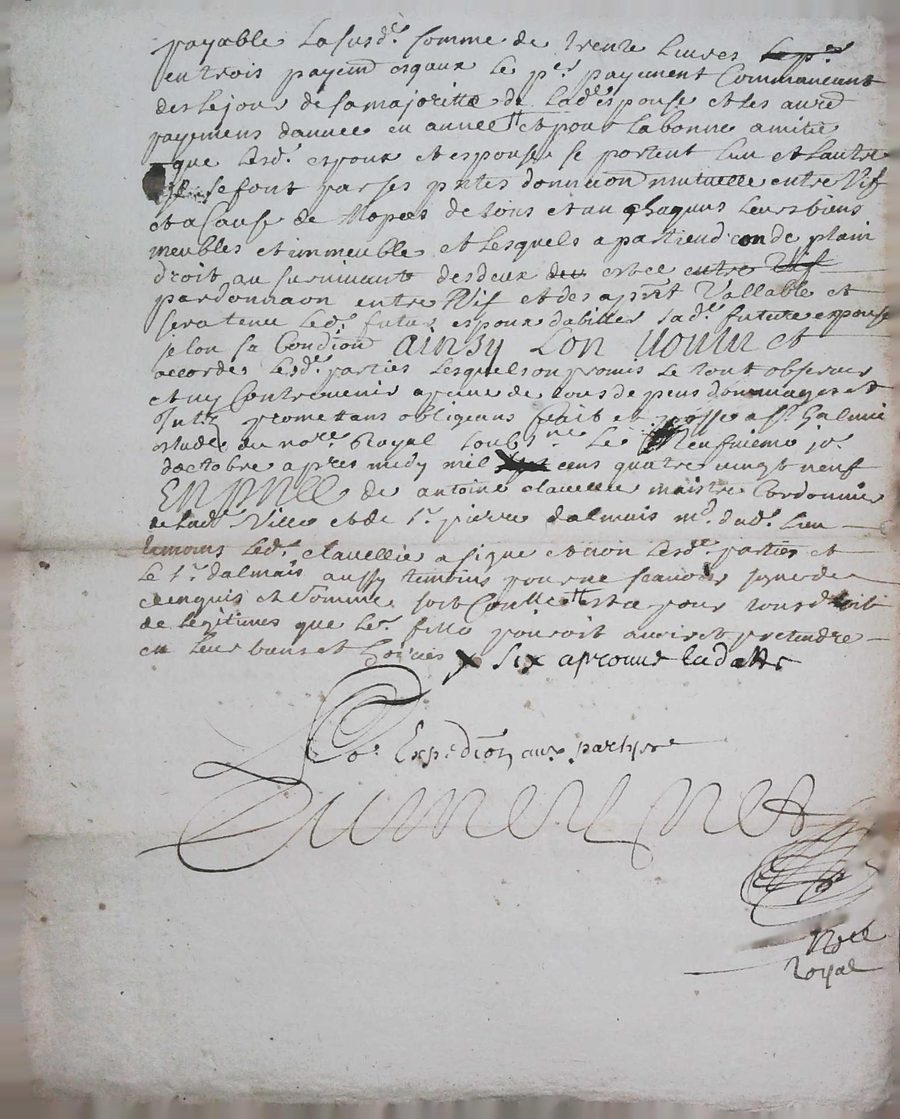 payable La susd.e somme de trente Livres
en trois payem.t esgaux Le p.er payement Commancant
des Le jour de sa majoritte de Lad. esponse et les autres
payemens dannee en annee et pour La bonne amitie
que Lesd. espoux et espouse se portent Lun et Lautre
se font par ses pntes donnaon mutuelle entre Vif
et a Cause de de tous et un chaquns Leurs biens
meubles et immeuble et Lesquels apartiendront de plain
droit au survivant des deux et ce
par donnaon entre Vif et des apnt Vallable et
sera tenu Led. futur espoux dabiller sad. future espouse
selon sa Condion ainsy Lon voulu et
accorde Lesd. parties Lesquels on promis Le tout observer
et ny Contrevenir a peine de tous despens dommages et
Intz promettans obligeans fait et passe a St. Galmie
estude du no.re Royal soub.ne Le neufuieme jo.r
doctobre apres midy mil cens quatre vingt neuf
En pnce de antoine clavellie maistre Cordonnie
de Lad. Ville et de s.r pierre dalmais m.d dud. Lieu
temoins Led. clavellie a signe et non Lesd. parties et
Le s.r dalmais aussy temoins pour ne scavoir signer de
ce enquis et somme soit Conlle et ce pour tous droit
de Legitimes que Lad. fille pouroit avoir et pretendre
en Leur biens et hoiries x six aprouve la datte
Po.r Expedion aux partyes
Dumeynet
No.re
royal